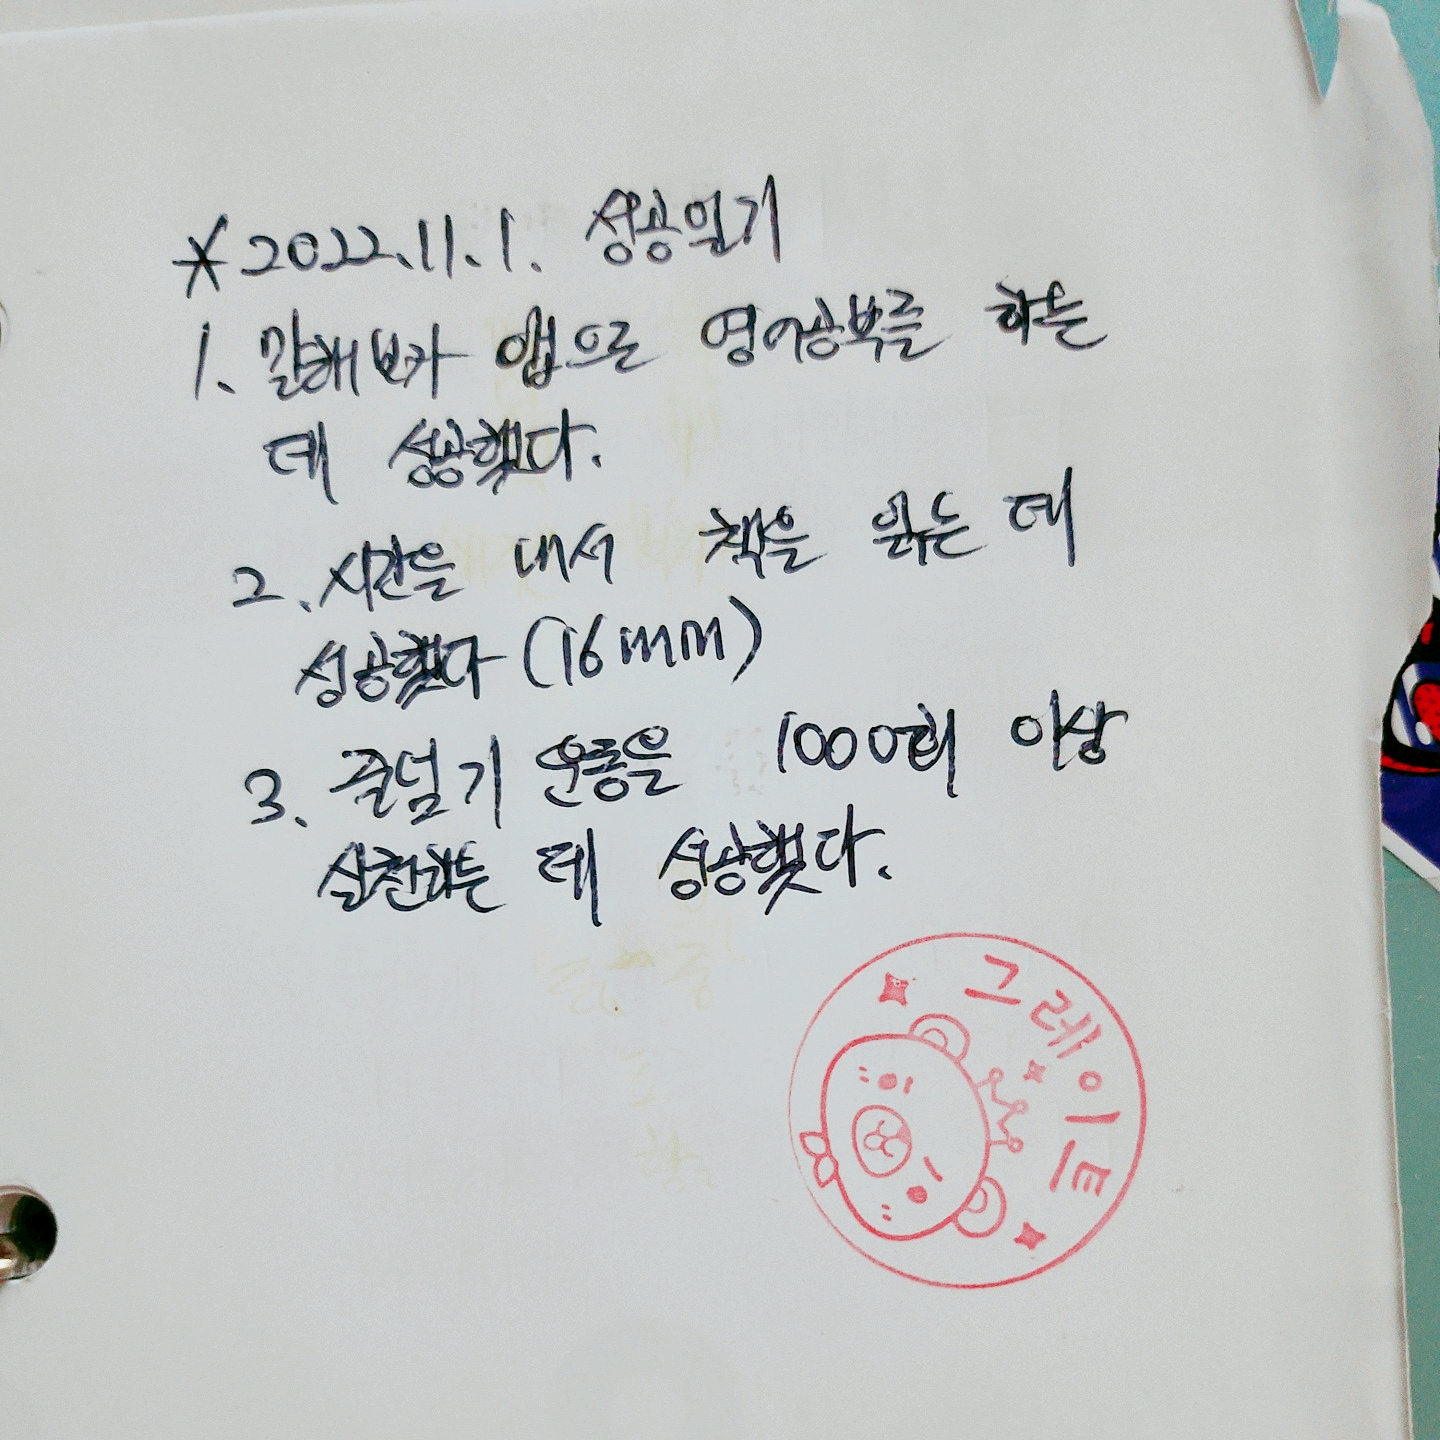 *2022.11.1. 성공일기
1. 말해보카 앱으로 영어공부를 하는
데 성공했다.
2. 시간을 내서 책을 읽는 데
성공했다 (16mm)
3. 줄넘기 운동을 1000회 이상
실천하는 데 성공했다.
그레이트